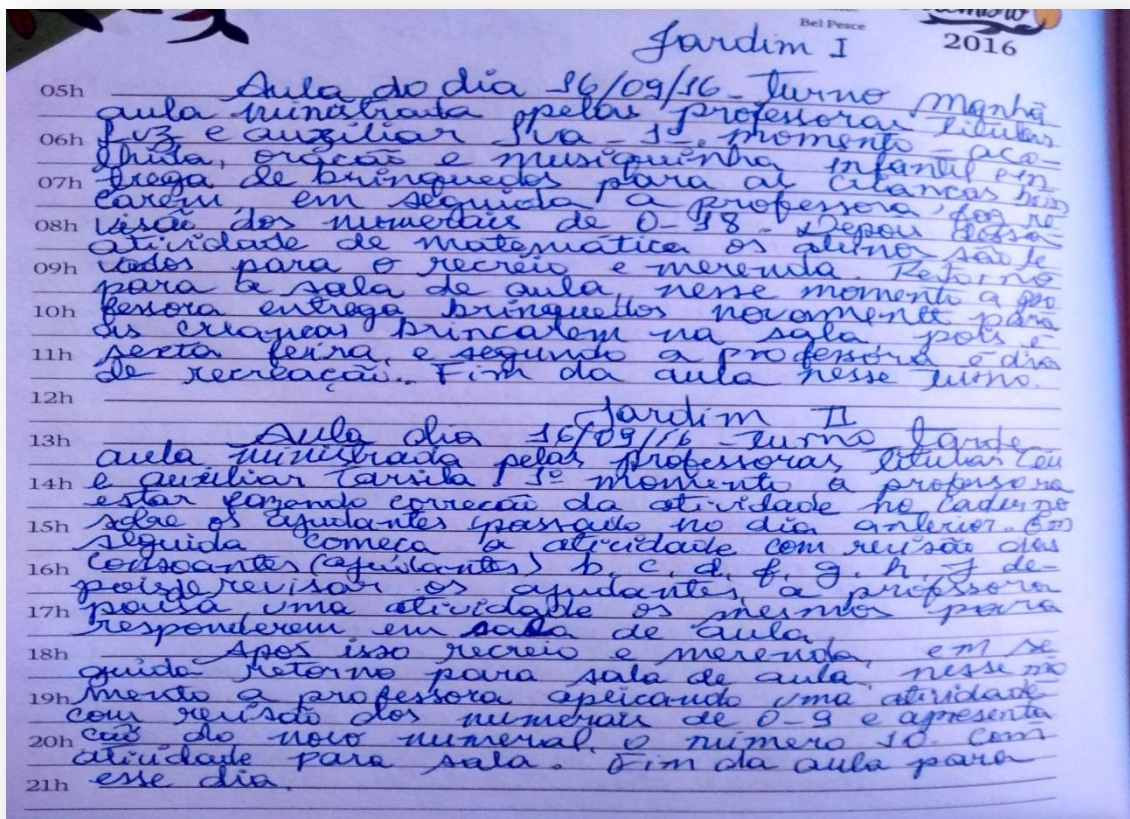 Bel Pesce
2016
Jardim I
05h Aula do dia 16/09/16 - Turno Manhã
aula ministrada pelas professoras titular
06h Luz e auxiliar Iva - 1º momento - aco-
lhida, oração e musiquinha infantil en
07h trega de brinquedos para as crianças brin
carem, em seguida a professora, faz re
08h visão dos numerais de 0-18. Depois dessa
atividade de matemática os alunos são le
09h vados para o recreio e merenda. Retorno
para a sala de aula, nesse momento a pro
10h fessora entrega brinquedos novamente para
as crianças brincarem na sala pois é
11h sexta feira, e segundo a professora é dia
de recreação. Fim da aula nesse turno.
12h
Jardim II
13h Aula dia 16/09/16 - Turno tarde
aula ministrada pelas professoras titular Céu
14h e auxiliar Tarsila, 1º momento a professora
estar fazendo correção da atividade no caderno
15h sobre os ajudantes passado no dia anterior. Em
seguida começa a atividade com revisão das
16h consoantes (ajudantes) b, c, d, f, g, h, j de-
pois de revisar os ajudantes, a professora
17h passa uma atividade os mesmos para
responderem em sala de aula,
18h Após isso recreio e merenda, em se
guida retorno para sala de aula, nesse mo
19h mento a professora aplicando uma atividade
com revisão dos numerais de 0-9 e apresenta
20h ção do novo numeral, o número 10. com
atividade para sala. Fim da aula para
21h esse dia.